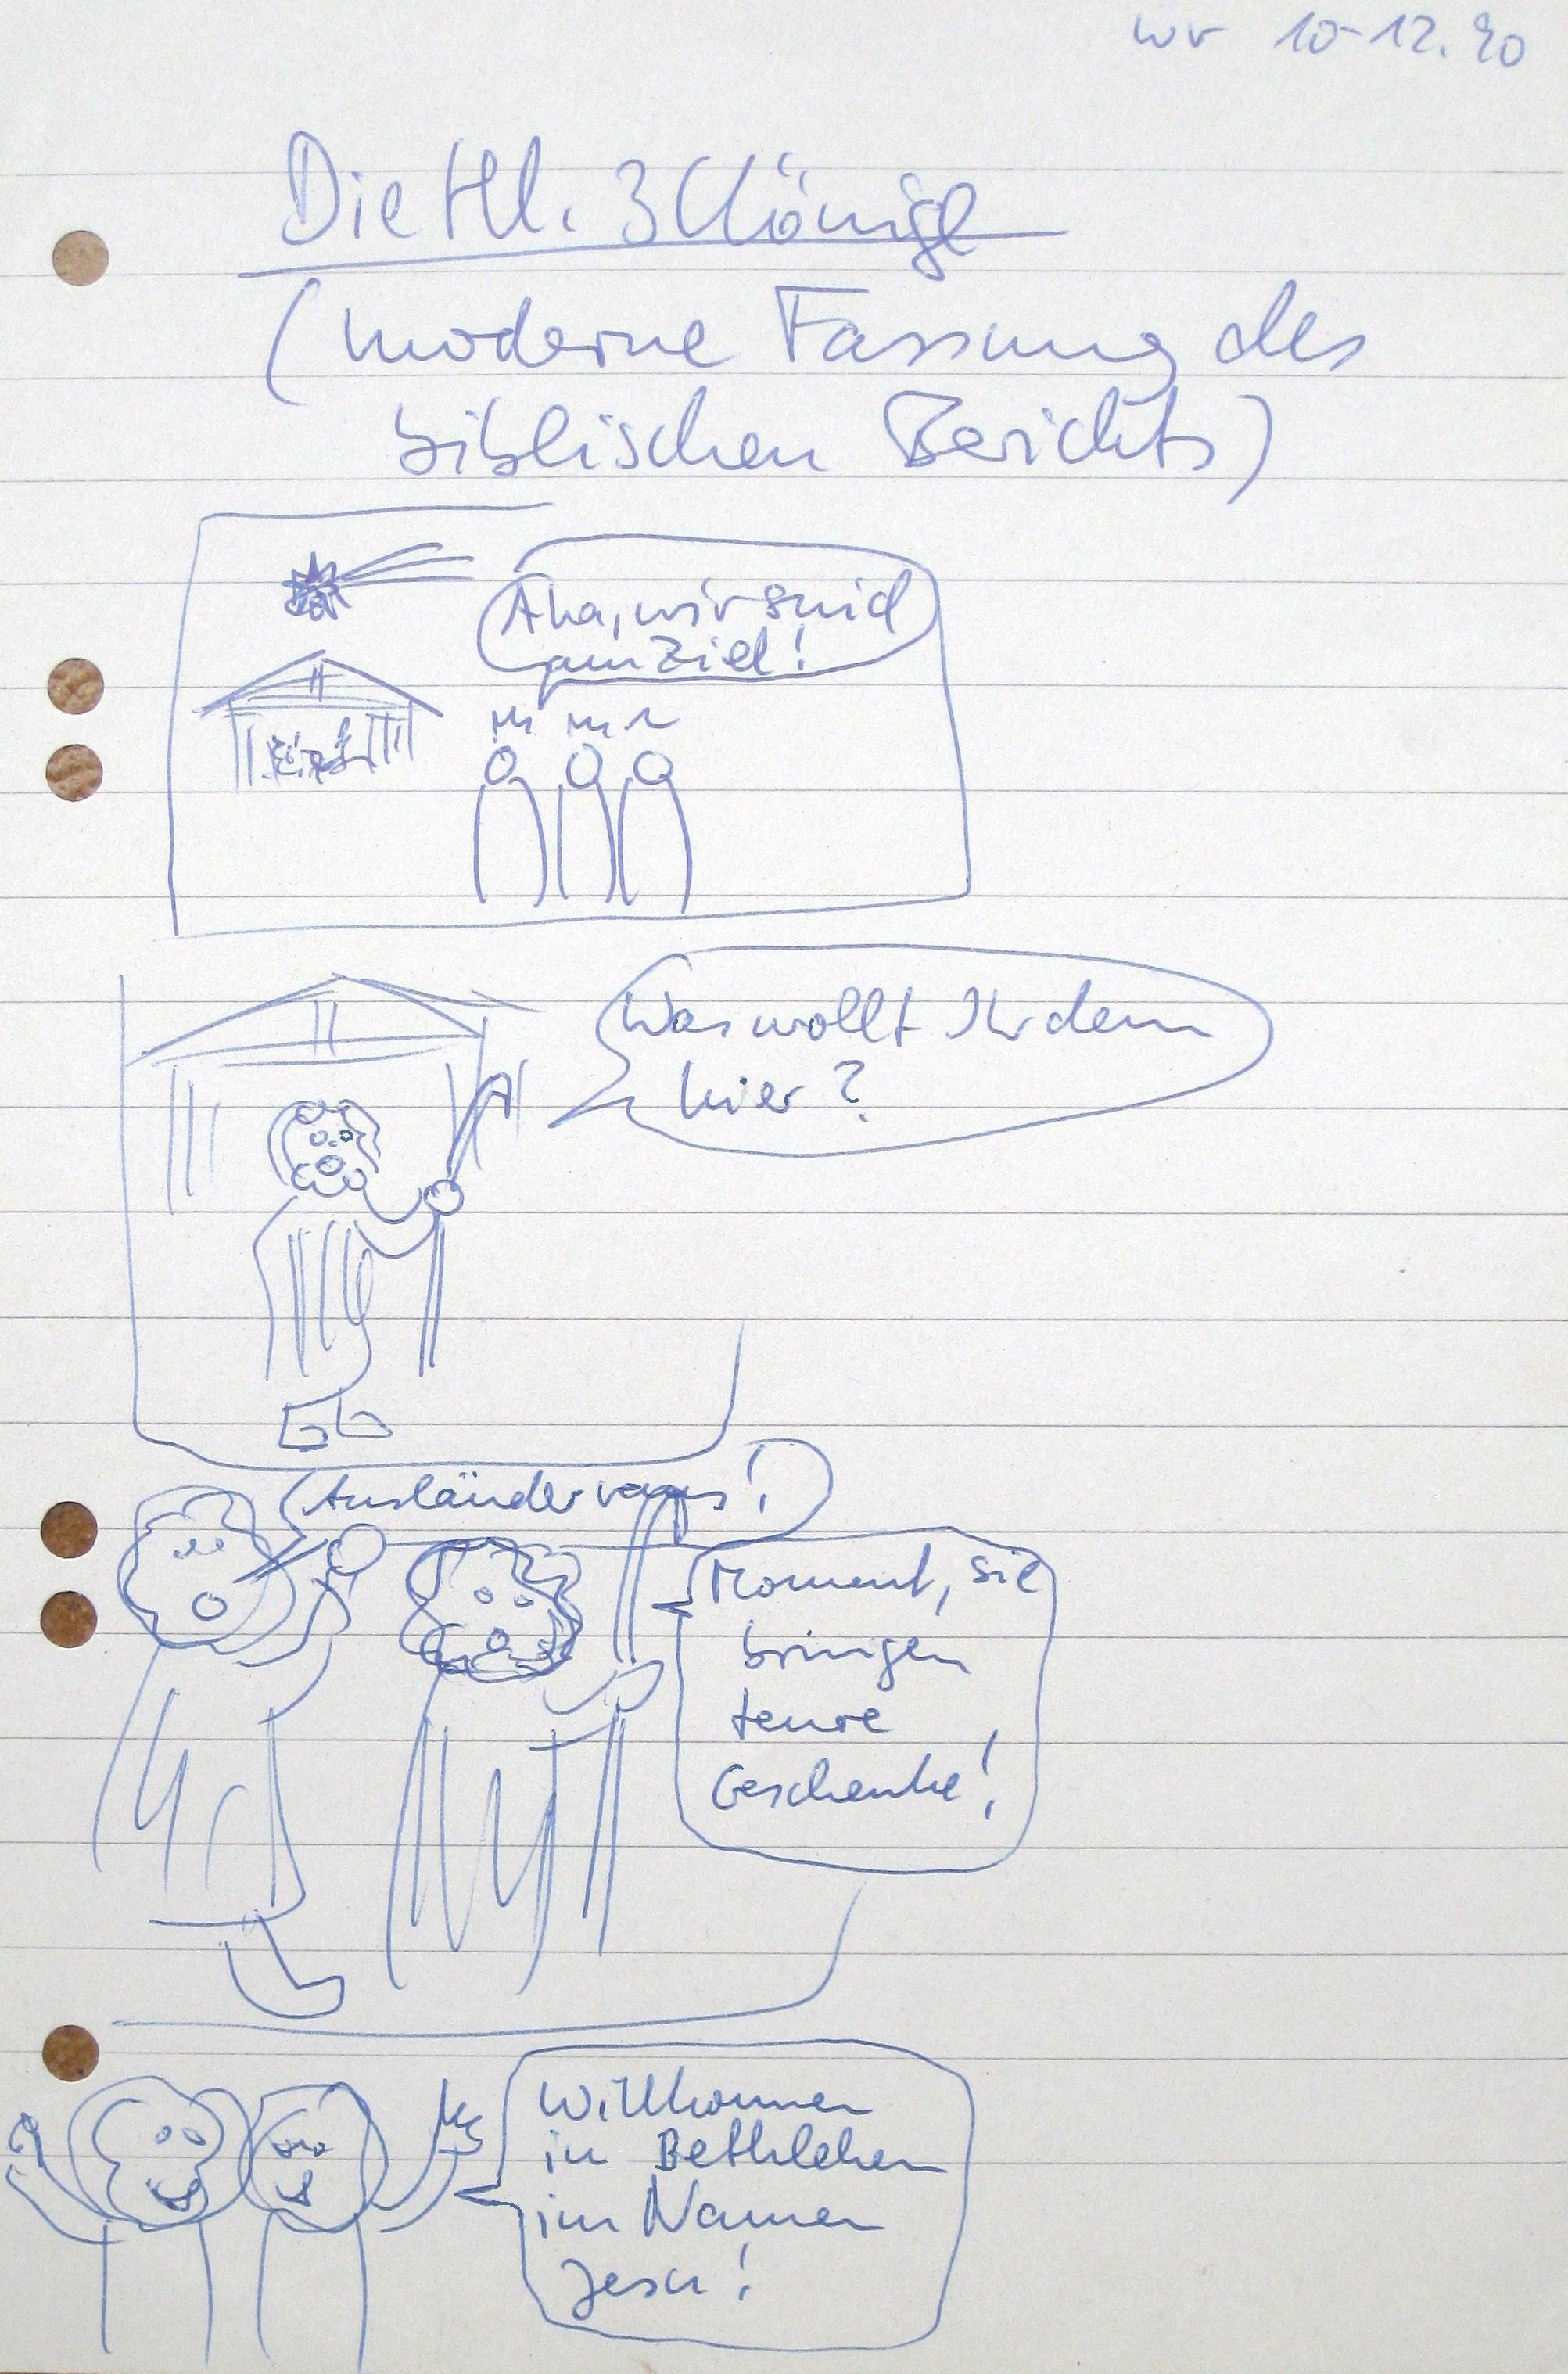 wv 10-12.90
Die Hl. 3 Könige
(moderne Fassung des
biblischen Berichts)
Aha, wir sind
am Ziel!
Was wollt Ihr denn
hier?
Ausländer raus!
Moment, sie
bringen
teure
Geschenke!
Willkommen
in Bethlehem
im Namen
Jesu!